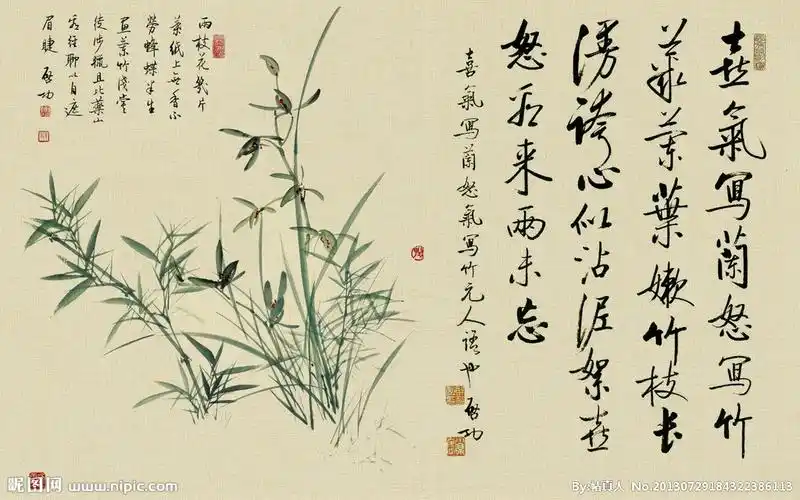 喜氣寫蘭怒寫竹
叢蘭葉嫩竹枝長
漫誇心似沾泥絮喜
怒看來兩未忘
喜氣寫蘭怒氣寫竹元人語也 啓功
兩枝花幾片
葉紙上無香不
勞蜂蝶半生
畫竹淺嘗
徒涉獵且比藥山
看經聊以自遮
眉睫 啓功
昵图网 www.nipic.com
By:站真人 No.20130729184322386113